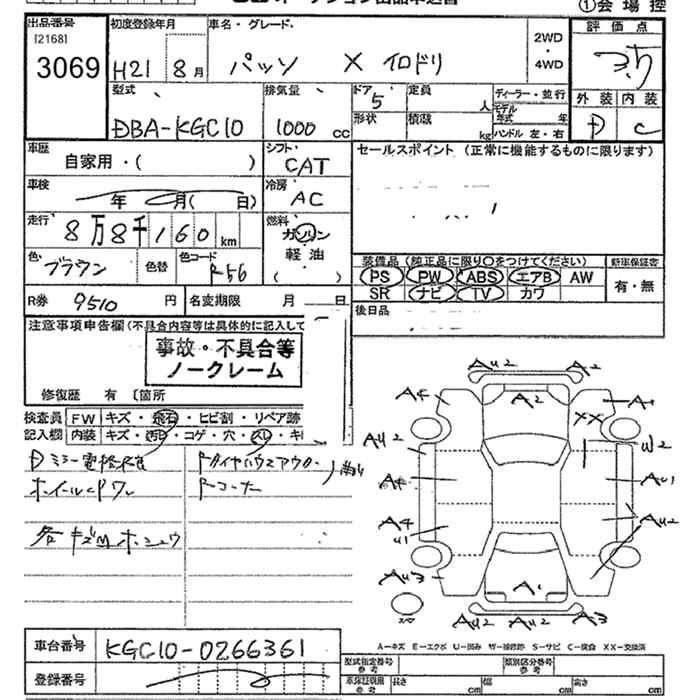 ①会場控
出品番号
[2168]
3069
初度登録年月
H21 8月
車名・グレード
パッソ X イロドリ
2WD
・
4WD
評価点
3.5
外装 内装
D C
型式
DBA-KGC10
排気量
1000 cc
ドア
5
定員
人
形状
積載
kg
ディーラー・並行
モデル年式 年
ハンドル 左・右
車歴
自家用・( )
シフト
CAT
セールスポイント (正常に機能するものに限ります)
車検
年 月( 日)
冷房
AC
走行
8万8千160km
燃料
ガソリン
軽油
( )
色
ブラウン
色替
色コード
R56
装備品 (純正品に限り○をつけてください)
PS PW ABS エアB AW
SR ナビ TV カワ
新車保証書
有・無
R券 9510 円
名変期限 月 日
後日品
注意事項申告欄(不具合内容等は具体的に記入して
事故・不具合等
ノークレーム
修復歴 有 〔箇所
検査員
記入欄
FW キズ・飛石・ヒビ割・リペア跡
内装 キズ・汚れ・コゲ・穴・スレ・キ
Dミラー電格
ホイールcap
各キズ凹ホシュウ
Rタイヤハウスアウター
Rコーナー
A42 A2
A4 A2 A1
XX
A42 W2
A4 A41
A4 A42
U1
A43 A1
A42 A42 A3
A-キズ E-エクボ U-凹み W-補修跡 S-サビ C-腐食 XX-交換済
車台番号
KGC10-0266361
登録番号
型式指定番号
参考
類別区分番号
参考
車庫証明用
参考
長さ cm 幅 cm 高さ cm